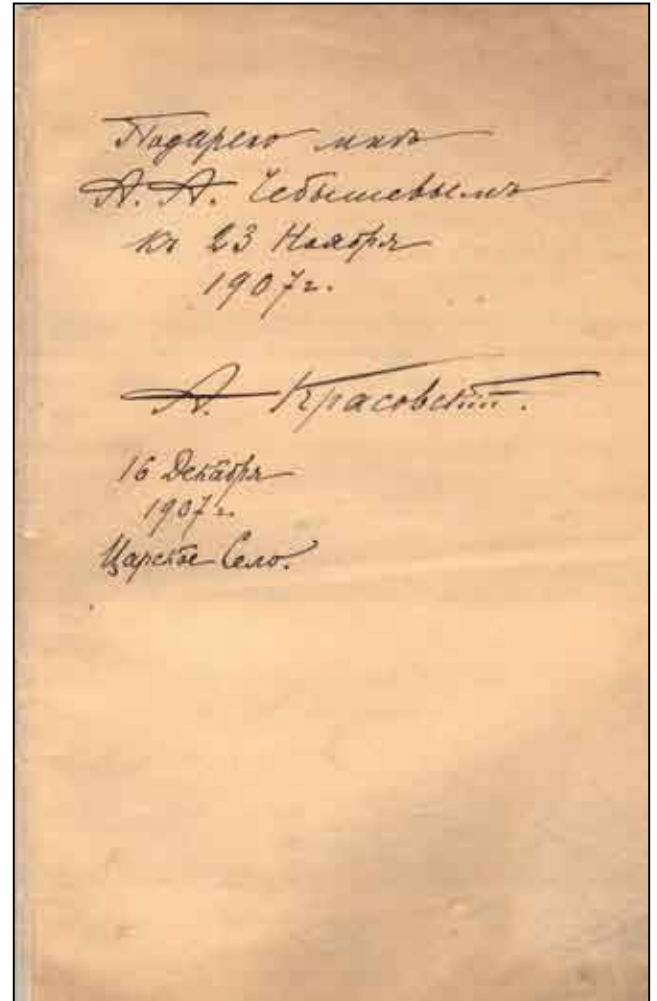 Подарено мнѣ
А. А. Чебышевымъ
къ 23 Ноября
1907 г.
А. Красовскій.
16 Декабря
1907 г.
Царское Село.